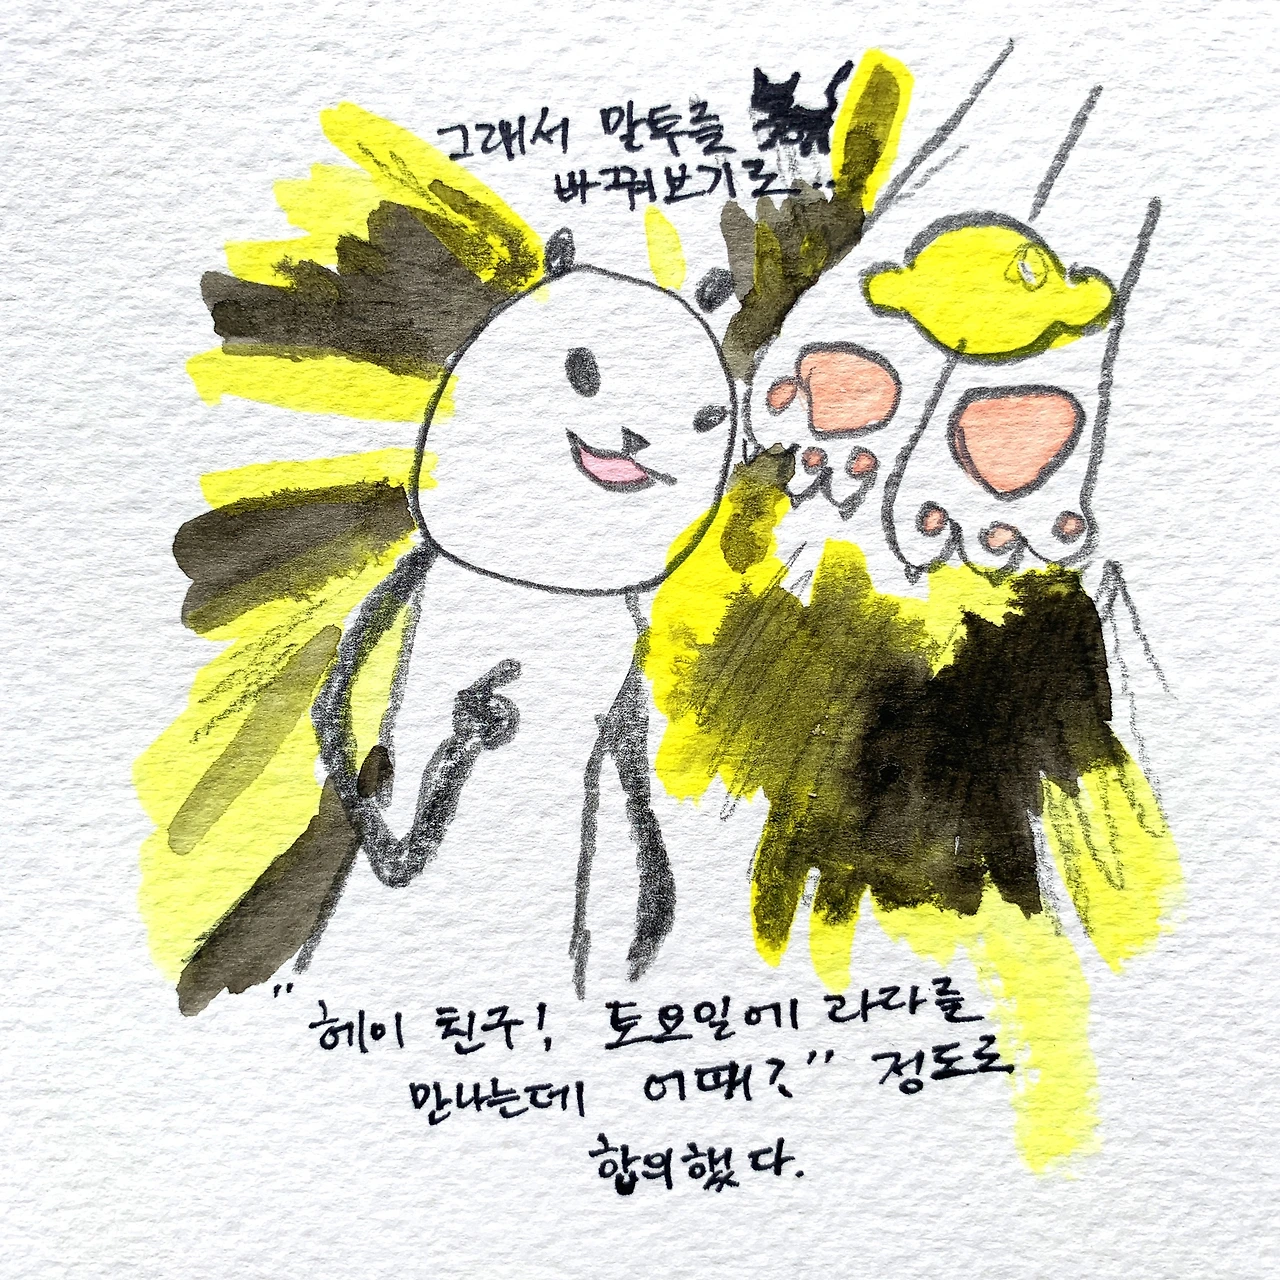 그래서 말투를
바꿔보기로..
"헤이 친구! 토요일에 라라를
만나는데 어때?" 정도로
합의했다.